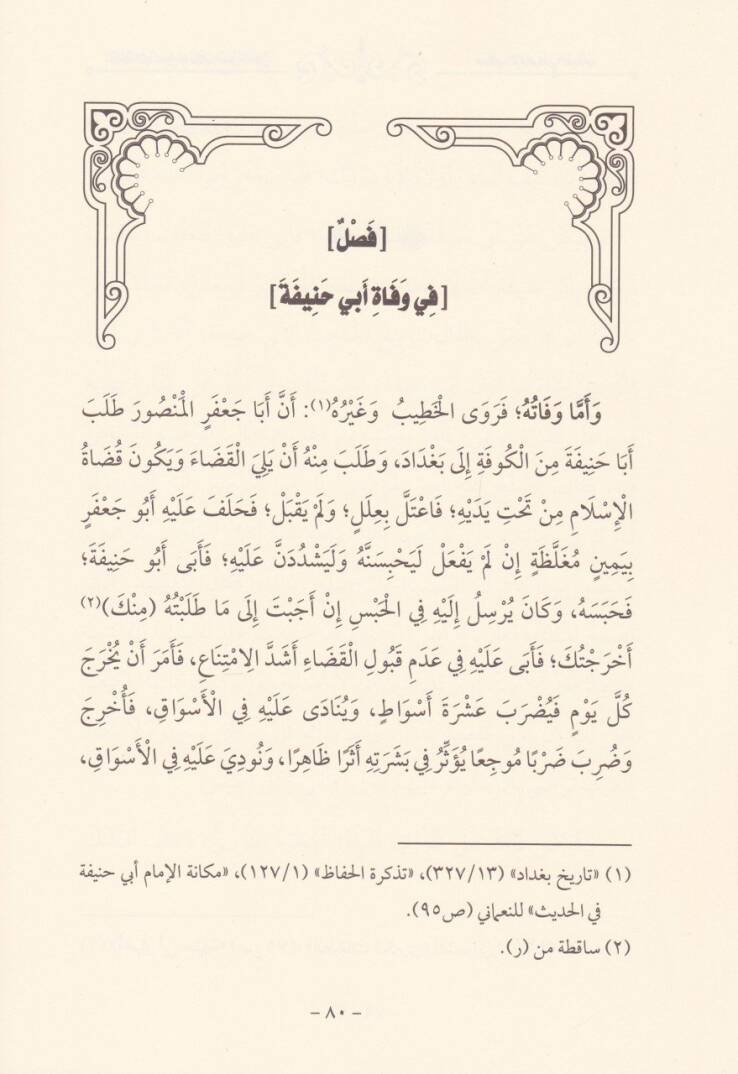 [فَصْلٌ]
[فِي وَفَاةِ أَبي حَنِيفَةَ]
وَأَمَّا وَفَاتُهُ؛ فَرَوَى الْخَطِيبُ وَغَيْرُهُ(١): أَنَّ أَبَا جَعْفَرٍ الْمَنْصُورَ طَلَبَ
أَبَا حَنِيفَةَ مِنَ الْكُوفَةِ إِلَى بَغْدَادَ، وَطَلَبَ مِنْهُ أَنْ يَلِيَ الْقَضَاءَ وَيَكُونَ قُضَاةُ
الْإِسْلَامِ مِنْ تَحْتِ يَدَيْهِ؛ فَاعْتَلَّ بِعِلَلٍ؛ وَلَمْ يَقْبَلْ؛ فَحَلَفَ عَلَيْهِ أَبُو جَعْفَرٍ
بِيَمِينٍ مُغَلَّظَةٍ إِنْ لَمْ يَفْعَلْ لَيَحْبِسَنَّهُ وَلَيَشْدُدَنَّ عَلَيْهِ؛ فَأَبَى أَبُو حَنِيفَةَ؛
فَحَبَسَهُ، وَكَانَ يُرْسِلُ إِلَيْهِ فِي الْحَبْسِ إِنْ أَجَبْتَ إِلَى مَا طَلَبْتُهُ (مِنْكَ)(٢)
أَخْرَجْتُكَ؛ فَأَبَى عَلَيْهِ فِي عَدَمِ قَبُولِ الْقَضَاءِ أَشَدَّ الِامْتِنَاعِ، فَأَمَرَ أَنْ يُخْرَجَ
كُلَّ يَوْمٍ فَيُضْرَبَ عَشْرَةَ أَسْوَاطٍ، وَيُنَادَى عَلَيْهِ فِي الْأَسْوَاقِ، فَأُخْرِجَ
وَضُرِبَ ضَرْبًا مُوجِعًا يُؤَثِّرُ فِي بَشَرَتِهِ أَثَرًا ظَاهِرًا، وَنُودِيَ عَلَيْهِ فِي الْأَسْوَاقِ،
(١) «تاريخ بغداد» (٣٢٧/١٣)، «تذكرة الحفاظ» (١٢٧/١)، «مكانة الإمام أبي حنيفة
في الحديث» للنعماني (ص٩٥).
(٢) ساقطة من (ر).
- ٨٠ -